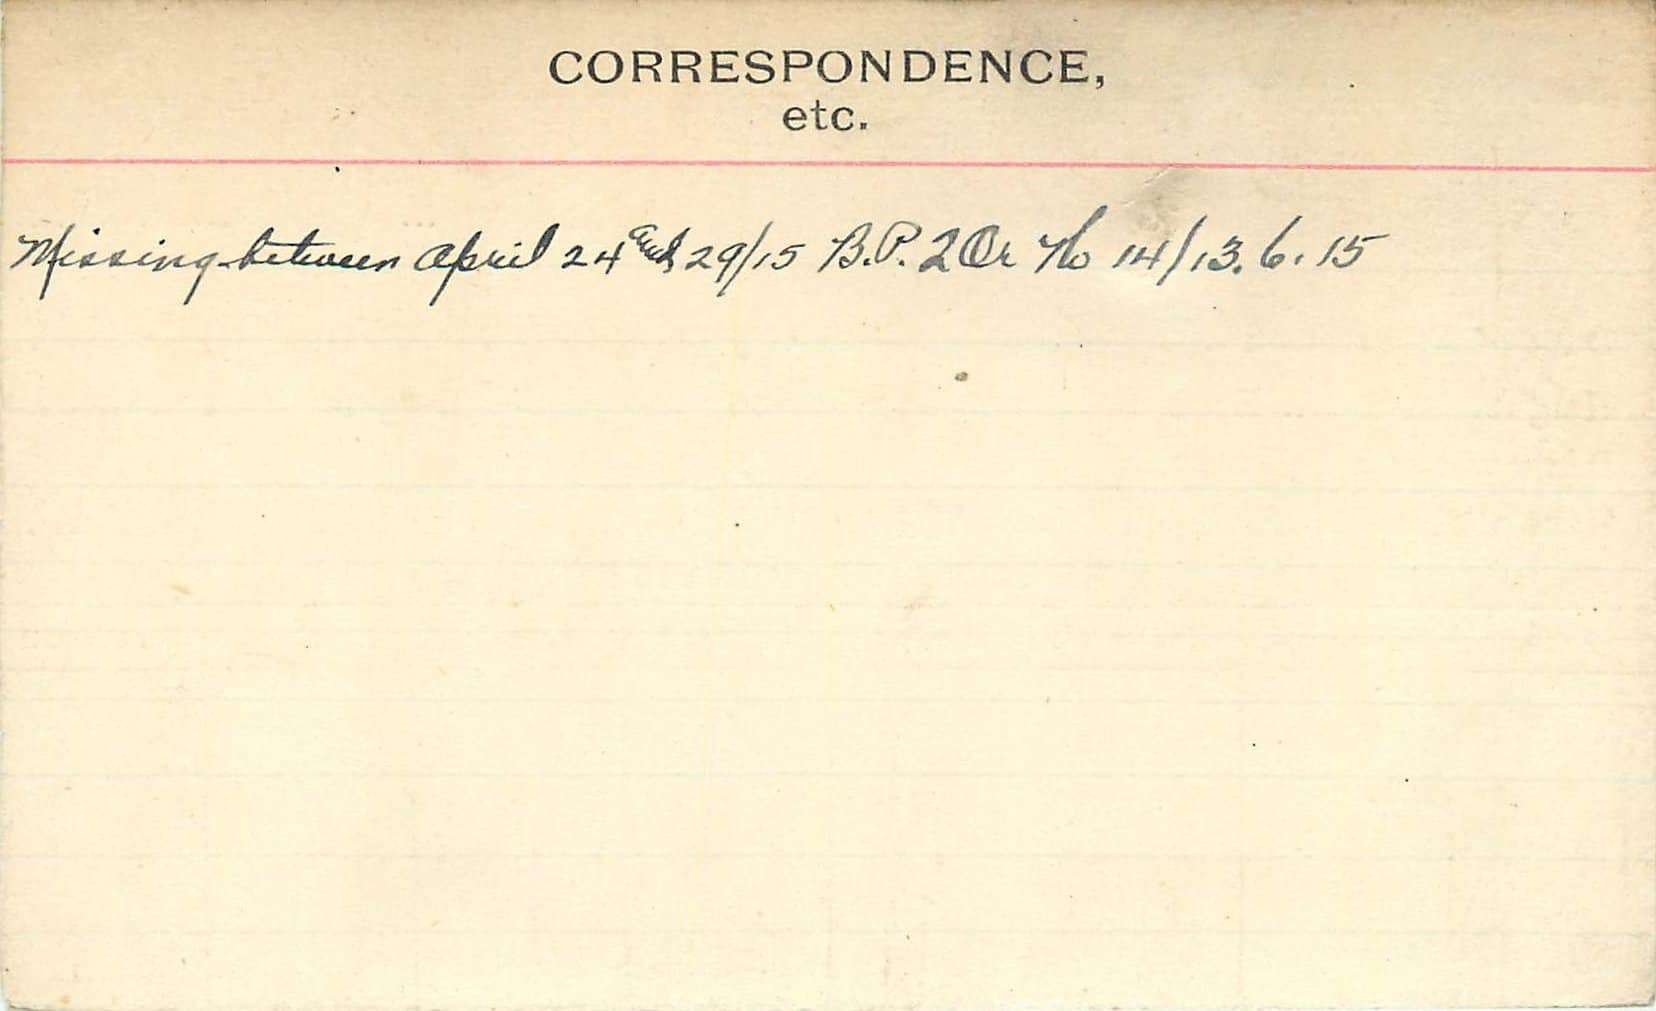 CORRESPONDENCE,
etc.
Missing between April 24 and 29/15 B.P. 2 Or No 14/13.6.15